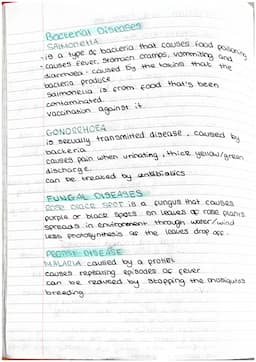 Bacterial Diseases
SALMONELLA
- is a type of bacteria that causes food poisoning
- causes fever, stomach cramps, vommitting and
diarrhoea. caused by the toxins that the
bacteria produce.
salmonella is from food that's been
contaminated.
vaccination against it.
GONORRHOEA
is sexually transmitted disease. caused by
bacteria
causes pain when urinating, thick yellow/green
discharge.
can be treated by antibiotics
FUNGAL DISEASES
ROSE BLACK SPOT is a fungus that causes
purple or black spots on leaves of rose plants
spreads in environment through water/wind
less photosynthesis as the leaves drop off.
PROTIST DISEASE
MALARIA caused by a protist
causes repeating episodes of fever
can be reduced by stopping the mosquitos
breeding